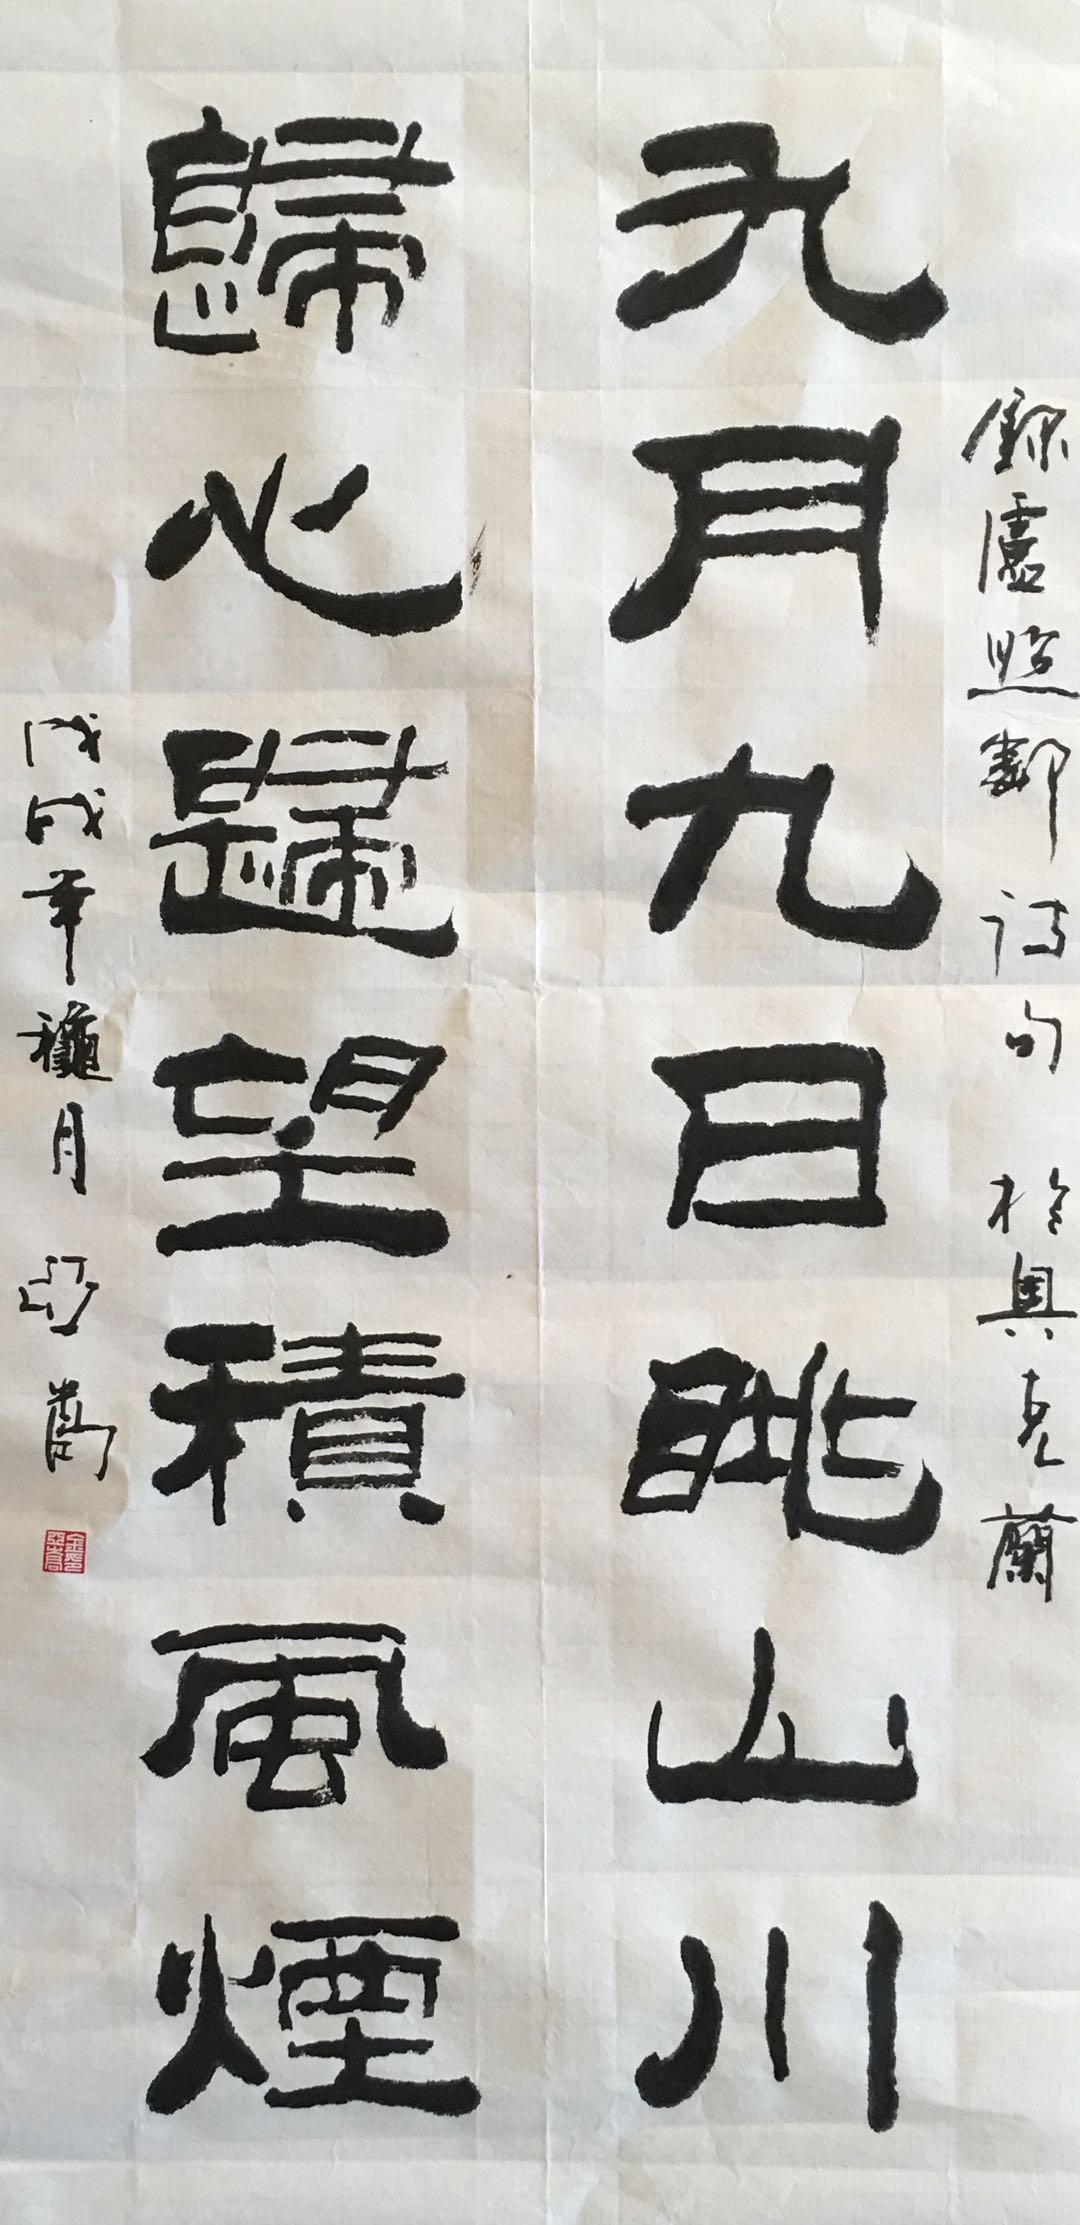 錄盧照鄰詩句 於奧克蘭
九月九日眺山川
歸心歸望積風煙
戊戌年龝月 亞嵩